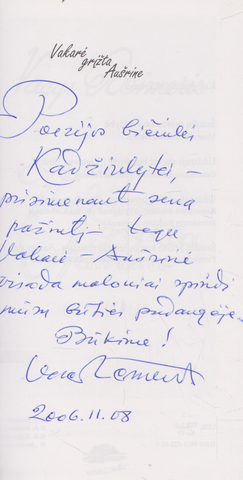 Vakarė
grįžta
Aušrine
Poezijos bičiulei
Kadžiulytei, –
prisimenant seną
pažintį – tegu
Vakarė – Aušrinė
visada maloniai spindi
mūsų būties padangėje.
Būkime!
2006.11.08